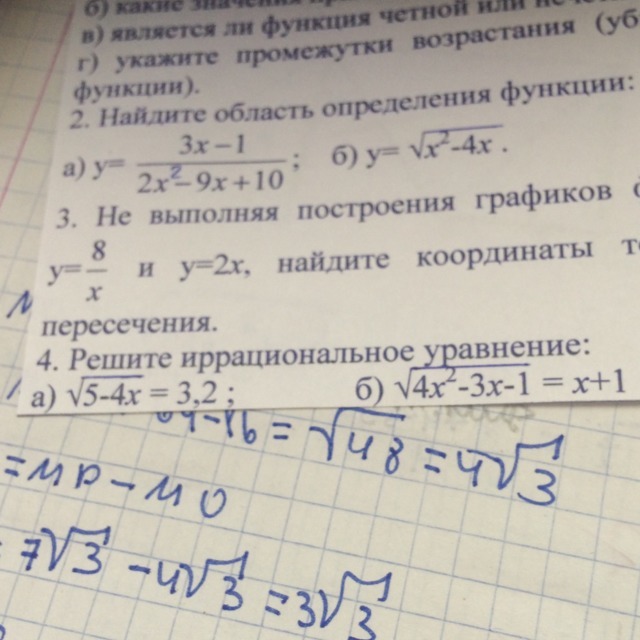 б) какие значения
в) является ли функция четной или
г) укажите промежутки возрастания (уб
функции).
2. Найдите область определения функции:
а) y= (3x−1)/(2x²−9x+10); б) y= √(x²-4x).
3. Не выполняя построения графиков
y=8/x и y=2x, найдите координаты т
пересечения.
4. Решите иррациональное уравнение:
а) √(5-4x) = 3,2 ; б) √(4x²-3x-1) = x+1
64-16 = √48 = 4√3
= MP − MO
= 7√3 − 4√3 = 3√3